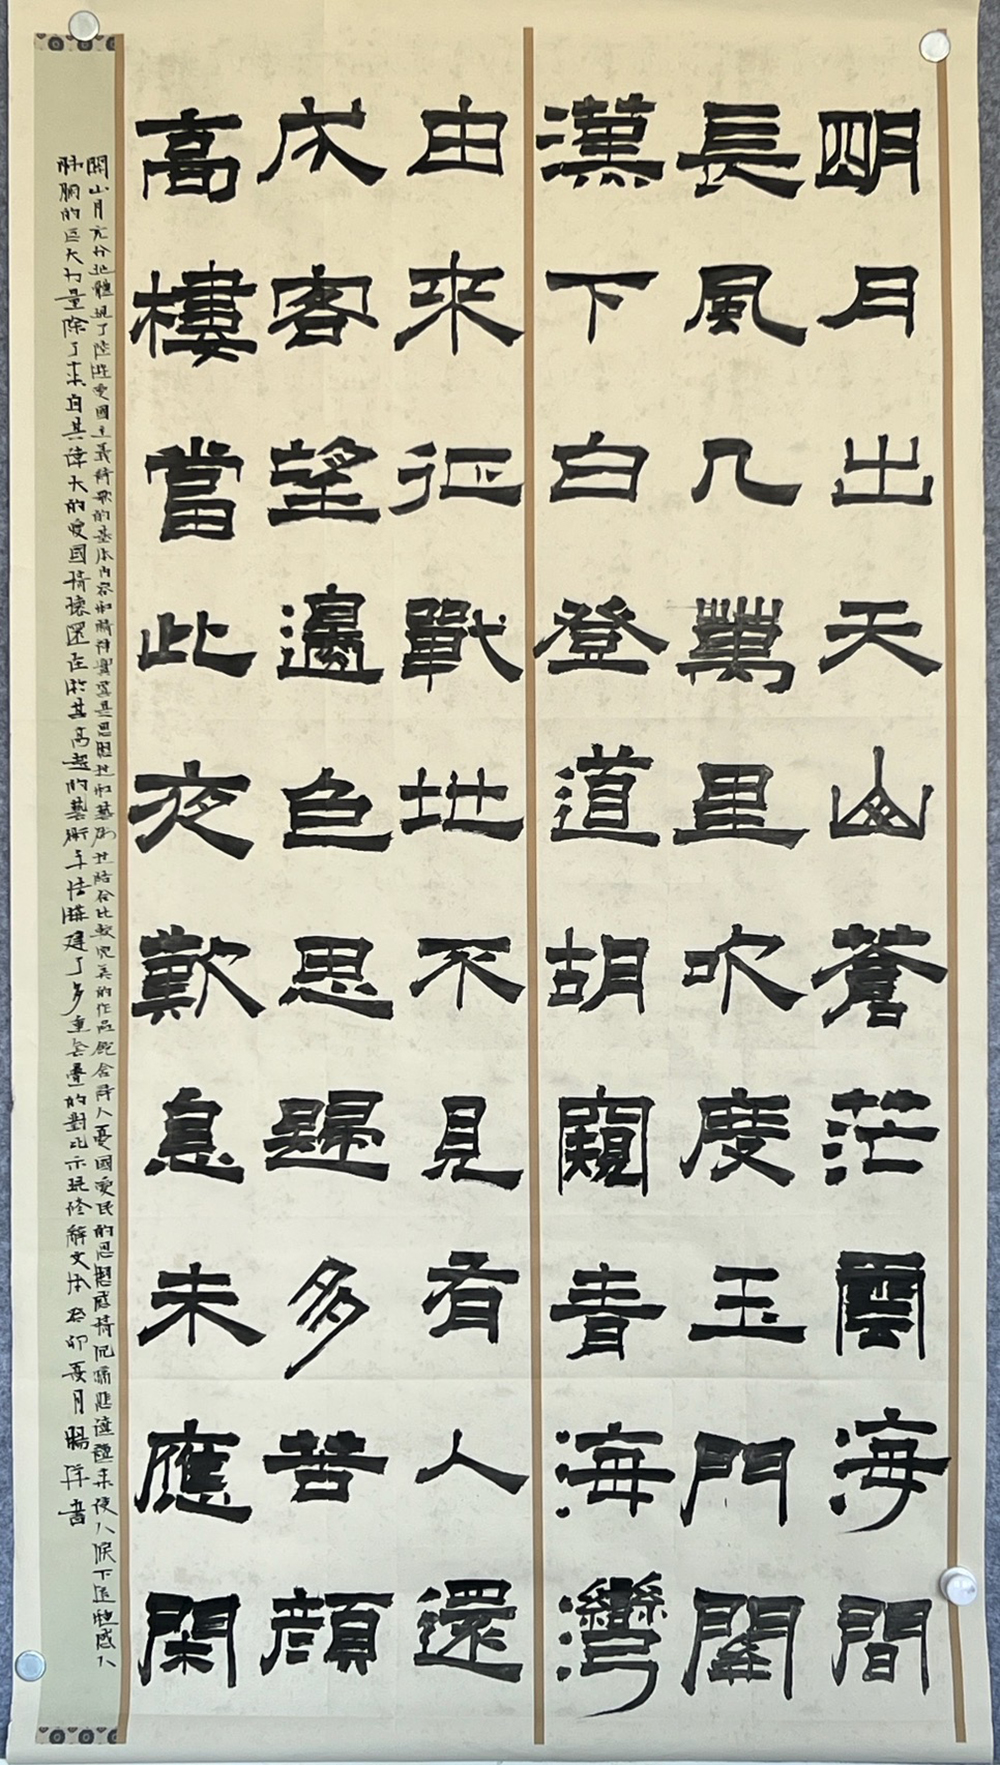 明月出天山蒼茫雲海間
長風几萬里吹度玉門關
漢下白登道胡窺青海灣
由來征戰地不見有人還
戍客望邊色思歸多苦顏
高樓當此夜歎息未應閑
關山月充分地體現了陸游愛國主義詩歌的基本內容和精神實質是思想性和藝術性結合比較完美的作品飽含詩人憂國愛民的思想感情沉痛悲這種來使人淚下這種感人
肺腑的巨大力量除了來自其偉大的愛國情懷還在於其高超的藝術手法構建了多重套疊的對比示現修辭文本癸卯夏月書